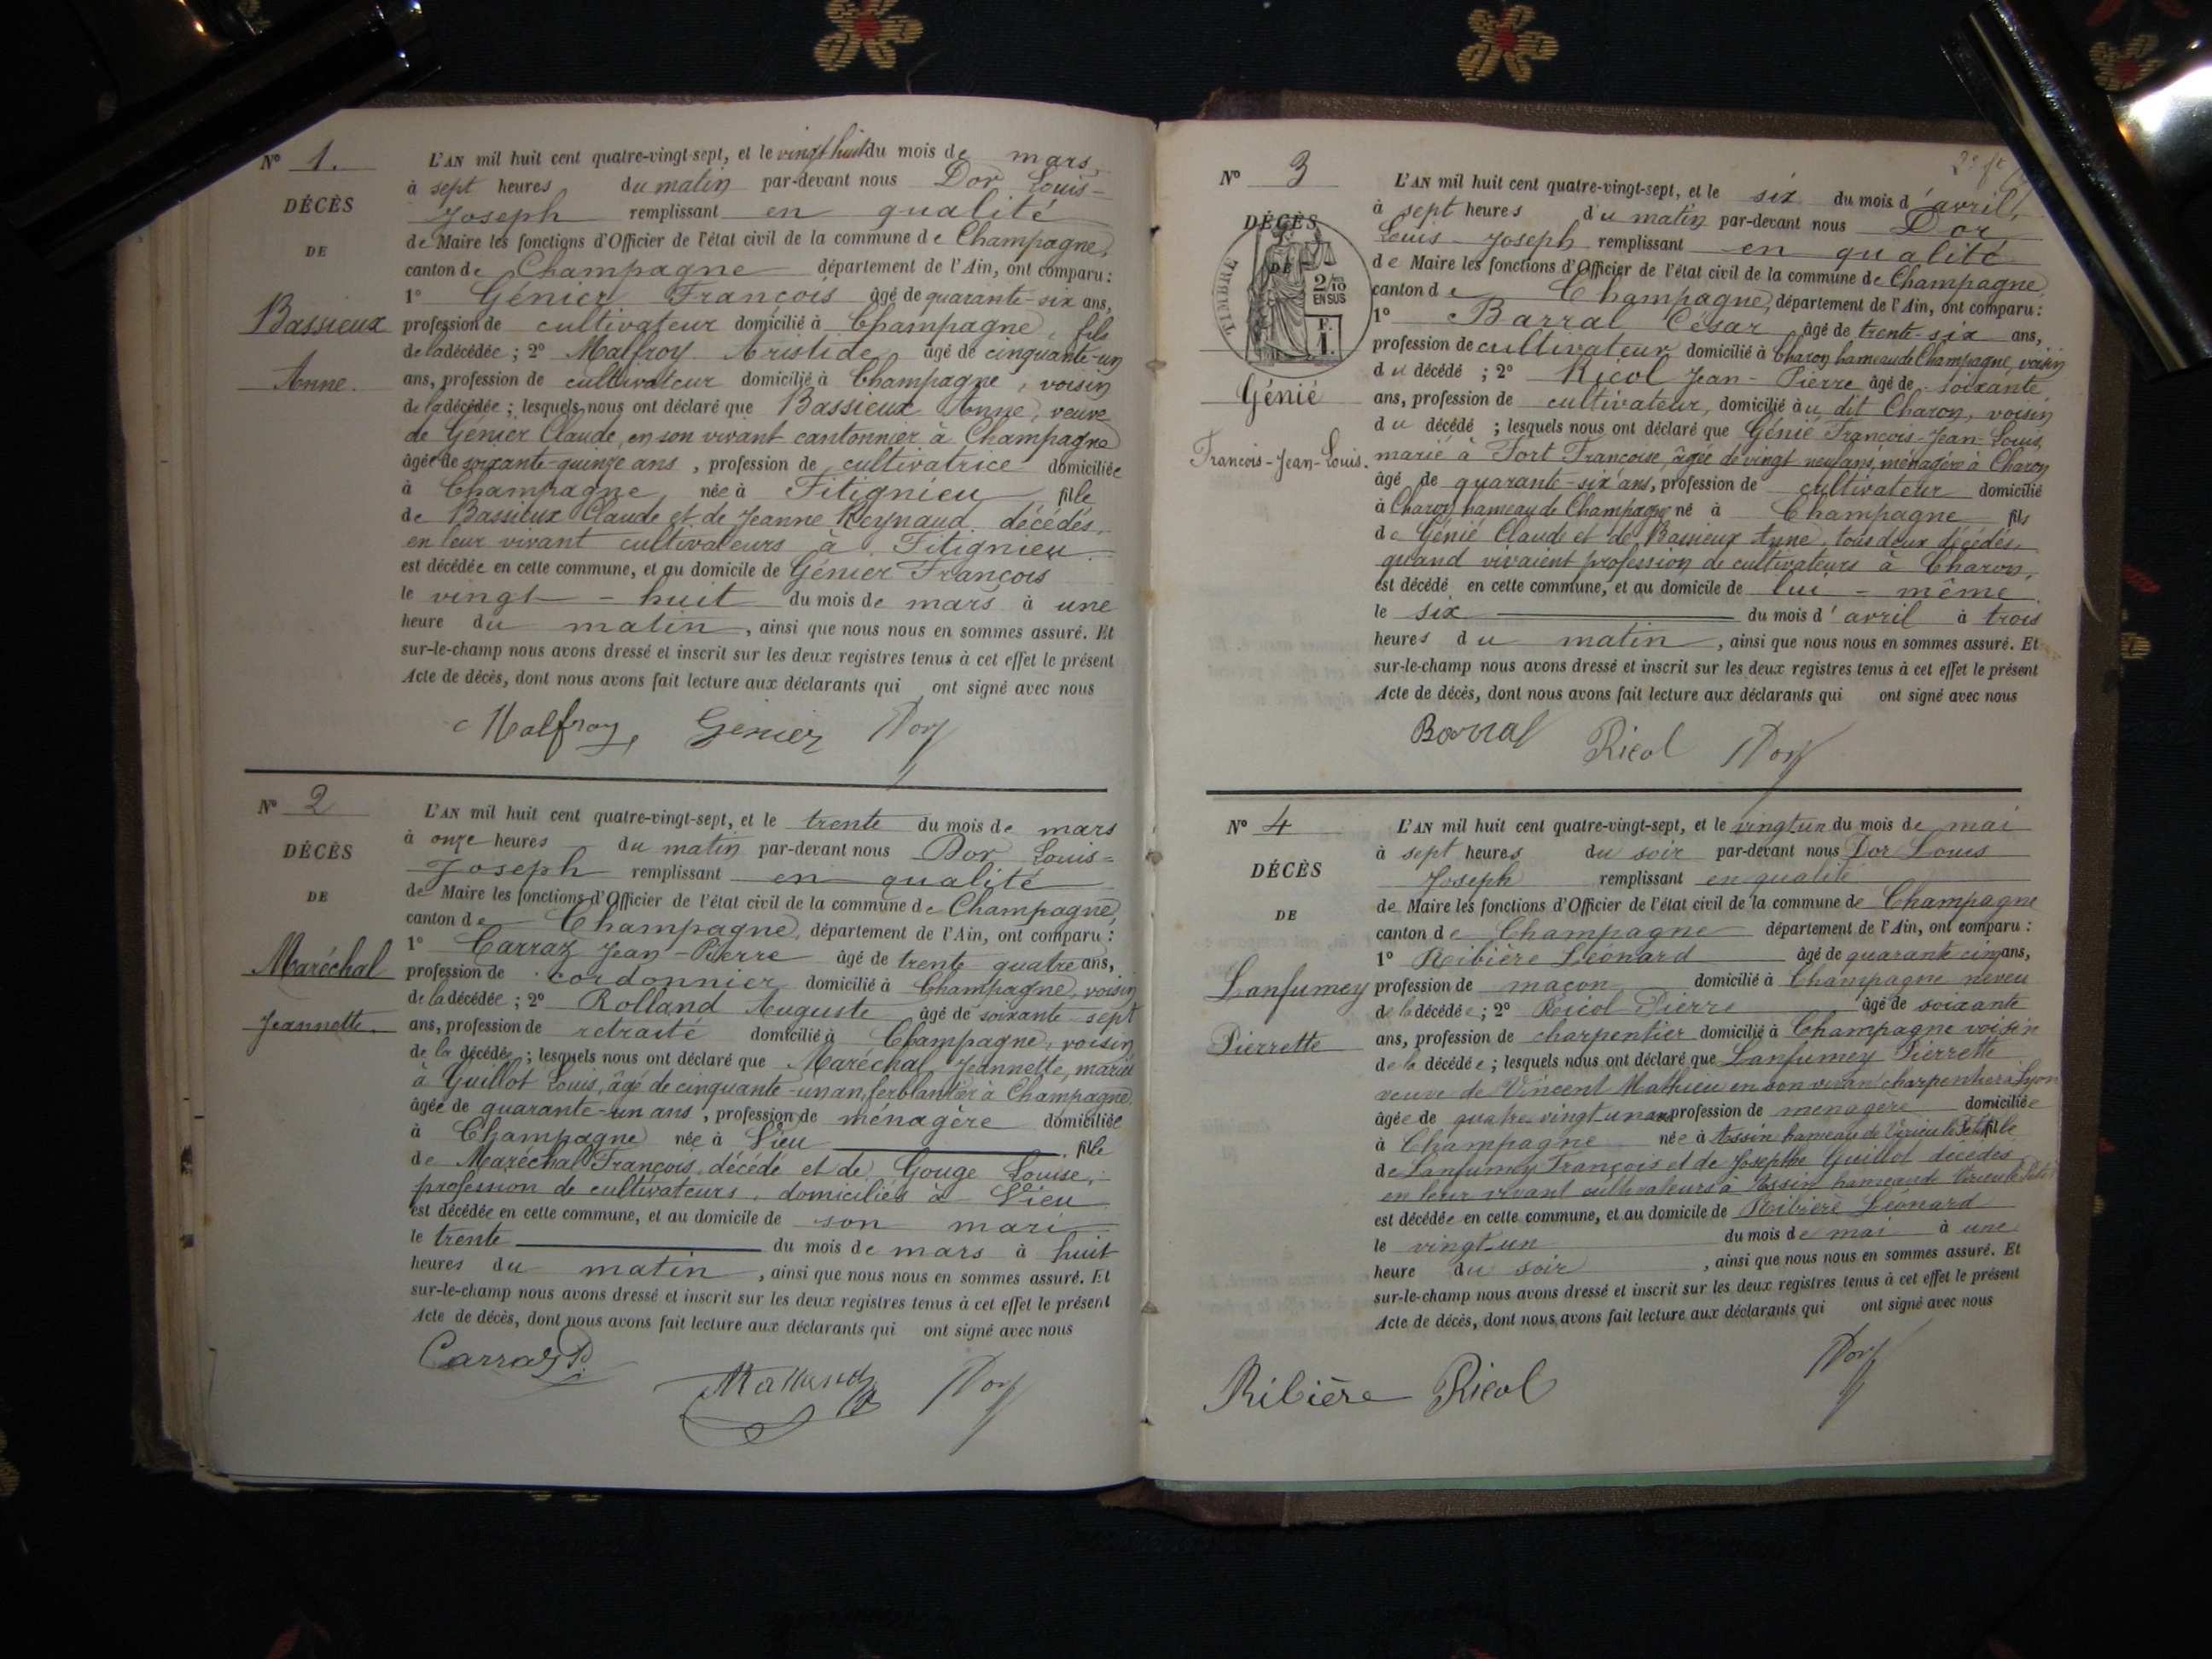 N° 1.
DÉCÈS
DE
Bassieux
Anne.
L'AN mil huit cent quatre-vingt-sept, et le vingt huit du mois de mars,
à sept heures du matin par-devant nous Dor Louis-
Joseph remplissant en qualité
de Maire les fonctions d'Officier de l'état civil de la commune de Champagne,
canton de Champagne département de l'Ain, ont comparu :
1° Génier François âgé de quarante-six ans,
profession de cultivateur domicilié à Champagne, fils
de la décédée ; 2° Malfroy Aristide âgé de cinquante-un
ans, profession de cultivateur domicilié à Champagne, voisin
de la décédée ; lesquels nous ont déclaré que Bassieux Anne, veuve
de Génier Claude, en son vivant cantonnier à Champagne
âgée de soixante-quinze ans, profession de cultivatrice domiciliée
à Champagne, née à Fitignieu fille
de Bassieux Claude et de Jeanne Reynaud, décédés,
en leur vivant cultivateurs à Fitignieu
est décédée en cette commune, et au domicile de Génier François
le vingt-huit du mois de mars à une
heure du matin, ainsi que nous nous en sommes assuré. Et
sur-le-champ nous avons dressé et inscrit sur les deux registres tenus à cet effet le présent
Acte de décès, dont nous avons fait lecture aux déclarants qui ont signé avec nous
Malfroy Génier Dor
N° 2
DÉCÈS
DE
Maréchal
Jeannette.
L'AN mil huit cent quatre-vingt-sept, et le trente du mois de mars
à onze heures du matin par-devant nous Dor Louis-
Joseph remplissant en qualité
de Maire les fonctions d'Officier de l'état civil de la commune de Champagne,
canton de Champagne, département de l'Ain, ont comparu :
1° Carraz Jean-Pierre âgé de trente quatre ans,
profession de cordonnier domicilié à Champagne, voisin
de la décédée ; 2° Rolland Auguste âgé de soixante-sept
ans, profession de retraité domicilié à Champagne, voisin
de la décédée ; lesquels nous ont déclaré que Maréchal Jeannette, mariée
à Guillot Louis, âgé de cinquante-un an, ferblantier à Champagne,
âgée de quarante-un ans, profession de ménagère domiciliée
à Champagne née à Vieu fille
de Maréchal François, décédé et de Gouge Louise,
profession de cultivateurs, domiciliés à Vieu
est décédée en cette commune, et au domicile de son mari
le trente du mois de mars à huit
heures du matin, ainsi que nous nous en sommes assuré. Et
sur-le-champ nous avons dressé et inscrit sur les deux registres tenus à cet effet le présent
Acte de décès, dont nous avons fait lecture aux déclarants qui ont signé avec nous
Carraz P. Rolland Dor
N° 3
DÉCÈS
DE
TIMBRE
2/10
EN SUS
F.
1.
Génié
François-Jean-Louis.
L'AN mil huit cent quatre-vingt-sept, et le six du mois d'avril,
à sept heures du matin par-devant nous Dor
Louis Joseph remplissant en qualité
de Maire les fonctions d'Officier de l'état civil de la commune de Champagne
canton de Champagne, département de l'Ain, ont comparu :
1° Barral César âgé de trente-six ans,
profession de cultivateur domicilié à Charon hameau de Champagne, voisin
du décédé ; 2° Ricol Jean-Pierre âgé de soixante
ans, profession de cultivateur, domicilié au dit Charon, voisin
du décédé ; lesquels nous ont déclaré que Génié François-Jean-Louis,
marié à Fort Françoise, âgée de vingt neuf ans, ménagère à Charon
âgé de quarante-six ans, profession de cultivateur domicilié
à Charon hameau de Champagne né à Champagne fils
de Génié Claude et de Bassieux Anne, tous deux décédés,
quand vivaient profession de cultivateurs à Charon,
est décédé en cette commune, et au domicile de lui-même
le six du mois d'avril à trois
heures du matin, ainsi que nous nous en sommes assuré. Et
sur-le-champ nous avons dressé et inscrit sur les deux registres tenus à cet effet le présent
Acte de décès, dont nous avons fait lecture aux déclarants qui ont signé avec nous
Barral Ricol Dor
N° 4
DÉCÈS
DE
Lanfumey
Pierrette
L'AN mil huit cent quatre-vingt-sept, et le vingt un du mois de mai
à sept heures du soir par-devant nous Dor Louis
Joseph remplissant en qualité
de Maire les fonctions d'Officier de l'état civil de la commune de Champagne
canton de Champagne département de l'Ain, ont comparu :
1° Ribière Léonard âgé de quarante cinq ans,
profession de maçon domicilié à Champagne neveu
de la décédée ; 2° Ricol Pierre âgé de soixante
ans, profession de charpentier domicilié à Champagne voisin
de la décédée ; lesquels nous ont déclaré que Lanfumey Pierrette
veuve de Vincent Mathieu en son vivant charpentier à Lyon
âgée de quatre vingt un ans profession de ménagère domiciliée
à Champagne née à Assin hameau de Virieu le Petit fille
de Lanfumey François et de Josephte Guillot décédés
en leur vivant cultivateurs à Assin hameau de Virieu le Petit
est décédée en cette commune, et au domicile de Ribière Léonard
le vingt-un du mois de mai à une
heure du soir, ainsi que nous nous en sommes assuré. Et
sur-le-champ nous avons dressé et inscrit sur les deux registres tenus à cet effet le présent
Acte de décès, dont nous avons fait lecture aux déclarants qui ont signé avec nous
Ribière Ricol Dor